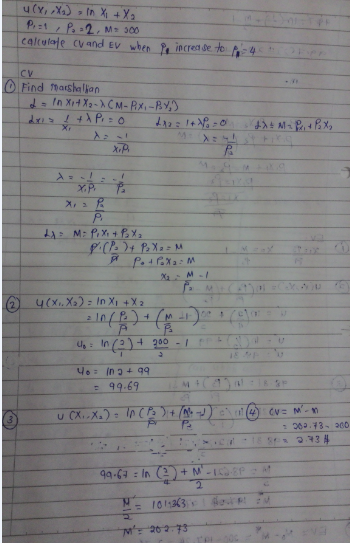 u(X₁,X₂) = ln X₁ + X₂
P₁=1, P₂=2, M=200
calculate CV and EV when increase to =4
CV
① Find marshallian
L = ln X₁ + X₂ - λ(M - P₁X₁ - P₂X₂)
Lx₁ = 1/x₁ + λP₁ = 0 Lx₂ = 1 + λP₂ = 0 Lλ = M = P₁X₁ + P₂X₂
λ = -1/x₁P₁ λ = -1/P₂
λ = -1/x₁P₁ = -1/P₂
x₁ = P₂/P₁
Lλ = M = P₁X₁ + P₂X₂
P₁(P₂/P₁) + P₂X₂ = M
P₂ + P₂X₂ = M
x₂ = M/P₂ - 1
② u(X₁,X₂) = ln X₁ + X₂
= ln(P₂/P₁) + (M/P₂ - 1)
U₀ = ln(2/1) + 200/2 - 1
U₀ = ln 2 + 99
= 99.69
③ u(X₁,X₂) = ln(P₂/P₁) + ④ CV = M' - M
= 202.73 - 200
= 2.73
M'/2
M'/2 =
M' = 202.73